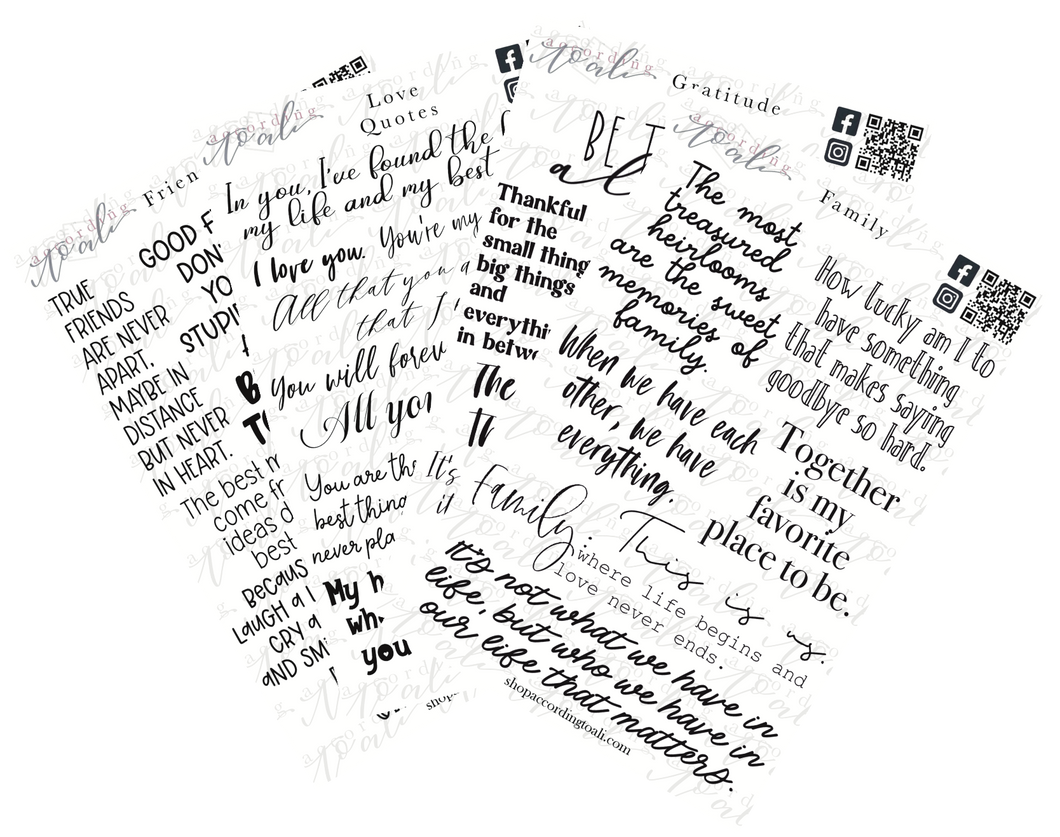 according
to ali
Frien
TRUE
FRIENDS
ARE NEVER
APART,
MAYBE IN
DISTANCE
BUT NEVER
IN HEART.
GOOD F
DON'
YO
STUPI
The best m
come fr
ideas d
best
Becaus
Laugh a l
cry a
and smi
according
to ali
Love
Quotes
In you, I've found the
my life and my best
I love you. You're my
All that you a
that I
You will forev
All you
You are the
best thing
never pla
It's
it
My h
wh
you
shop
according
to ali
Gratitude
BE T
al
Thankful
for the
small thing
big things
and
everythi
in betw
The
Th
according
to ali
Family
The most
treasured
heirlooms
are the sweet
memories of
family.
How lucky am I to
have something
that makes saying
goodbye so hard.
When we have each
other, we have
everything.
Together
is my
favorite
place to be.
Family:
where life begins and
love never ends.
This is us.
It's not what we have in
life, but who we have in
our life that matters.
shopaccordingtoali.com